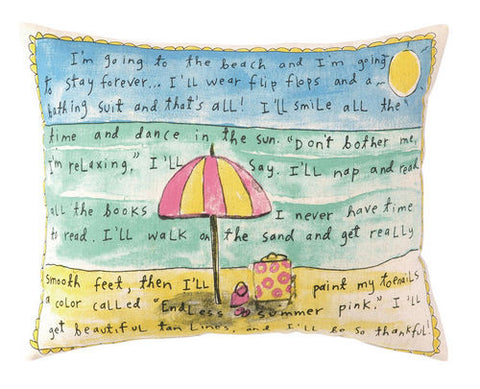 I'm going to the beach and I'm going
to stay forever... I'll wear flip flops and a
bathing suit and that's all! I'll smile all the
time and dance in the sun. "Don't bother me,
I'm relaxing," I'll say. I'll nap and read
all the books I never have time
to read. I'll walk on the sand and get really
smooth feet, then I'll paint my toenails
a color called "Endless Summer pink." I'll
get beautiful tan lines, and I'll be so thankful!